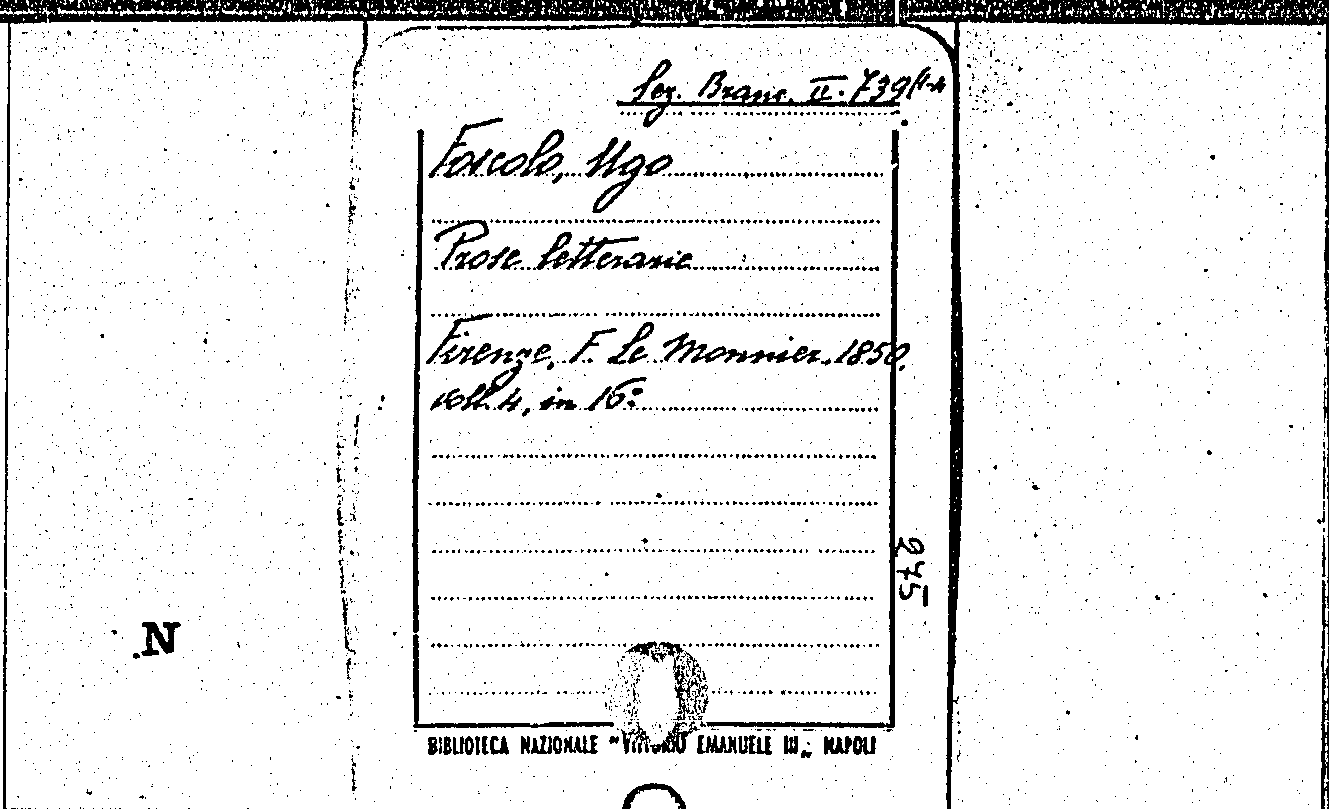 Sez. Branc. II. 739(1-4
Foscolo, Ugo
Prose letterarie
Firenze, F. Le Monnier, 1850.
voll. 4, in 16º
275
N
BIBLIOTECA NAZIONALE "VITTORIO EMANUELE III„ NAPOLI